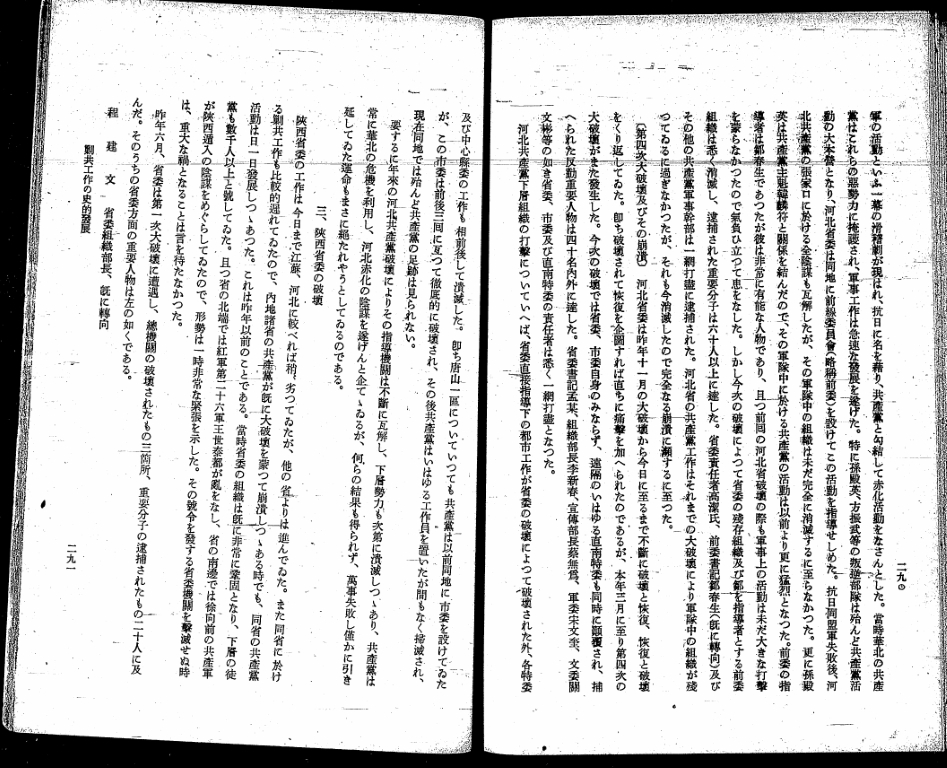 二九〇
軍の活動といふ一幕の滑稽劇が現はれ、抗日に名を藉り、共產黨と勾結して赤化活動をなさんとした。當時華北の共產
黨はこれらの惡勢力に掩護され、軍事工作は急速な發展を遂げた。特に孫殿英、方振武等の叛逆部隊は殆んど共產黨活
動の大本營となり、河北省委は同地に前線委員會(略稱前委)を設けてこの活動を指導せしめた。抗日同盟軍失敗後、河
北共產黨の張家口に於ける全陰謀も瓦解したが、その軍隊中の組織は未だ完全に消滅するに至らなかつた。更に孫殿
英は共產黨主魁韓麟符と關係を結んだので、その軍隊中に於ける共產黨の活動は以前より更に猛烈となつた。前委の指
導者は鄒春生であつたが彼は非常に有能な人物であり、且つ前囘の河北省破壞の際も軍事上の活動は未だ大きな打擊
を蒙らなかつたので氣負ひ立つて惠をなした。しかし今次の破壞によつて省委の殘存組織及び鄒を指導者とする前委
組織は悉く消滅し、逮捕された重要分子は六十人以上に達した。省委責任者高潔氏、前委書記鄒春生(旣に轉向)及び
その他の共產黨軍事幹部は一網打盡に逮捕された。河北省の共產黨工作はそれまでの大破壞により軍隊中の組織が殘
つてゐるに過ぎなかつたが、それも今消滅したので完全なる崩潰に瀕するに至つた。
(第四次大破壞及びその崩潰) 河北省委は昨年十一月の大破壞から今日に至るまで不斷に破壞と恢復、恢復と破壞
をくり返してゐた。卽ち破壞されて恢復を企圖すれば直ちに痛擊を加へられたのであるが、本年三月に至り第四次の
大破壞がまた發生した。今次の破壞では省委、市委自身のみならず、遠隔のいはゆる直南特委も同時に顚覆され、捕
へられた反動重要人物は四十名內外に達した。省委書記孟某、組織部長李新春、宣傳部長蔡無爲、軍委宋文奎、文委關
文彬等の如き省委、市委及び直南特委の責任者は悉く一網打盡となつた。
河北共產黨下層組織の打擊についていへば、省委直接指導下の都市工作が省委の破壞によつて破壞された外、各特委
及び中心縣委の工作も相前後して潰滅した。卽ち唐山一區についていつても共產黨は以前同地に市委を設けてゐた
が、この市委は前後三囘に亙つて徹底的に破壞され、その後共產黨はいはゆる工作員を置いたが間もなく掃滅され、
現在同地では殆んど共產黨の足跡は見られない。
要するに年來の河北共產黨破壞によりその指導機關は不斷に瓦解し、下層勢力も次第に潰滅しつゝあり、共產黨は
常に華北の危機を利用し、河北赤化の陰謀を遂げんと企てゝゐるが、何らの結果も得られず、萬事失敗し僅かに引き
延してゐた運命もまさに絕たれやうとしてゐるのである。
三、陝西省委の破壞
陝西省委の工作は今日まで江蘇、河北に較べれば稍〻劣つてゐたが、他の省よりは進んでゐた。また同省に於け
る剿共工作も比較的遲れてゐたので、內地諸省の共產黨が旣に大破壞を蒙つて崩潰しつゝある時でも、同省の共產黨
活動は日一日發展しつゝあつた。これは昨年以前のことである。當時省委の組織は旣に非常に鞏固となり、下層の徒
黨も數千人以上と號してゐた。且つ省の北端では紅軍第二十六軍王世泰都が亂をなし、省の南邊では徐向前の共產軍
が陝西遁入の陰謀をめぐらしてゐたので、形勢は一時非常な緊張を示した。その號令を發する省委機關を擊滅せぬ時
は、重大な禍となることは言を待たなかつた。
昨年六月、省委は第一次大破壞に遭遇し、總機關の破壞されたもの三箇所、重要分子の逮捕されたもの二十人に及
んだ。そのうちの省委方面の重要人物は左の如くである。
程 建 文 省委組織部長、旣に轉向
剿共工作の史的發展
二九一